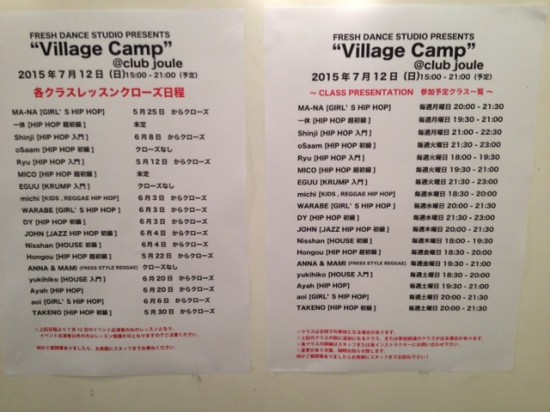 FRESH DANCE STUDIO PRESENTS
"Village Camp"
@club joule
2015年7月12日(日)15:00 - 21:00 (予定)
各クラスレッスンクローズ日程
MA-NA [GIRL'S HIP HOP] 5月25日 からクローズ
一休 [HIP HOP 超初級] 未定
Shinji [HIP HOP 入門] 6月8日 からクローズ
oSaam [HIP HOP 初級] クローズなし
Ryu [HIP HOP 入門] 5月12日 からクローズ
MICO [HIP HOP 超初級] 未定
EGUU [KRUMP 入門] クローズなし
michi [KIDS , REGGAE HIP HOP] 6月3日 からクローズ
WARABE [GIRL'S HIP HOP] 6月3日 からクローズ
DY [HIP HOP 初級] 6月3日 からクローズ
JOHN [JAZZ HIP HOP 初級] 6月4日 からクローズ
Nisshan [HOUSE 初級] 6月4日 からクローズ
Hongou [HIP HOP 超初級] 5月22日 からクローズ
ANNA & MAMI (FREES STYLE REGGAE) クローズなし
yukihiko [HOUSE 入門] 6月20日 からクローズ
Ayah [HIP HOP] 6月20日 からクローズ
aoi [GIRL'S HIP HOP] 6月6日 からクローズ
TAKENO [HIP HOP 初級] 5月30日 からクローズ
FRESH DANCE STUDIO PRESENTS
"Village Camp"
@club joule
2015年7月12日(日)15:00 - 21:00 (予定)
〜 CLASS PRESENTATION 参加予定クラス一覧 〜
MA-NA [GIRL'S HIP HOP] 毎週月曜日 20:00 - 21:30
一休 [HIP HOP 超初級] 毎週月曜日 19:30 - 21:00
Shinji [HIP HOP 入門] 毎週月曜日 21:00 - 22:30
oSaam [HIP HOP 初級] 毎週月曜日 21:30 - 23:00
Ryu [HIP HOP 入門] 毎週火曜日 18:00 - 19:30
MICO [HIP HOP 超初級] 毎週火曜日 19:30 - 21:00
EGUU [KRUMP 入門] 毎週火曜日 21:30 - 23:00
michi [KIDS , REGGAE HIP HOP] 毎週水曜日 18:30 - 20:00
WARABE [GIRL'S HIP HOP] 毎週水曜日 20:00 - 21:30
DY [HIP HOP 初級] 毎週水曜日 21:30 - 23:00
JOHN [JAZZ HIP HOP 初級] 毎週木曜日 20:00 - 21:30
Nisshan [HOUSE 初級] 毎週木曜日 18:00 - 19:30
Hongou [HIP HOP 超初級] 毎週金曜日 18:30 - 20:00
ANNA & MAMI (FREES STYLE REGGAE) 毎週金曜日 19:30 - 21:00
yukihiko [HOUSE 入門] 毎週土曜日 18:30 - 20:00
Ayah [HIP HOP] 毎週土曜日 19:30 - 21:00
aoi [GIRL'S HIP HOP] 毎週土曜日 20:00 - 21:30
TAKENO [HIP HOP 初級] 毎週土曜日 20:00 - 21:30